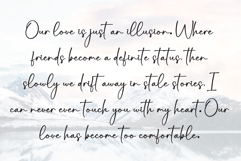 Our love is just an illusion. Where
friends become a definite status, then
slowly we drift away in stale stories. I
can never even touch you with my heart. Our
love has become too comfortable.